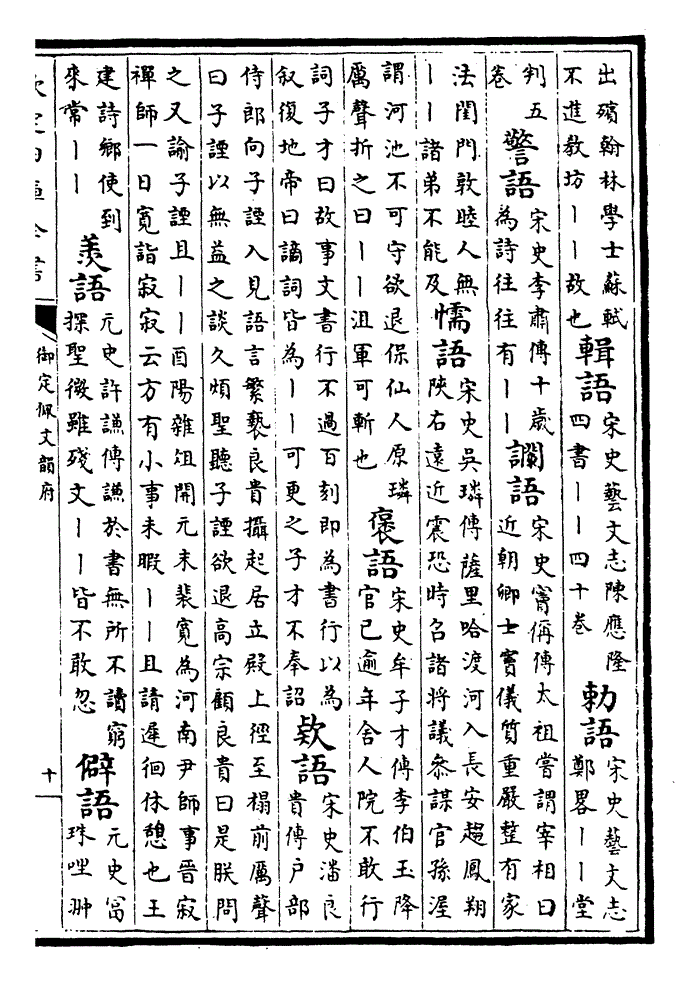 出殯翰林學士蘇軾
不進教坊丨丨故也
輯語
宋史藝文志陳應隆
四書丨丨四十巻
勅語
宋史藝文志
鄭畧丨丨堂
判五
卷
警語
宋史李肅傳十歳
為詩往往有丨丨
讕語
宋史竇偁傳太祖嘗謂宰相曰
近朝卿士竇儀質重嚴整有家
法閨門敦睦人無
丨丨諸弟不能及
懦語
宋史吳璘傳薩里哈渡河入長安趨鳳翔
陜右遠近震恐時召諸將議叅謀官孫渥
謂河池不可守欲退保仙人原璘
厲聲折之曰丨丨沮軍可斬也
褒語
宋史牟子才傳李伯玉降
官已逾年舍人院不敢行
詞子才曰故事文書行不過百刻即為書行以為
叙復地帝曰謫詞皆為丨丨可更之子才不奉詔
欵語
宋史潘良
貴傳户部
侍郎向子諲入見語言繁褻良貴攝起居立殿上徑至榻前厲聲
曰子諲以無益之談久煩聖聽子諲欲退高宗顧良貴曰是朕問
之又諭子諲且丨丨酉陽雜俎開元末裴寛為河南尹師事普寂
禪師一日寛詣寂寂云方有小事未暇丨丨且請遲徊休憩也王
建詩鄉使到
來常丨丨
羨語
元史許謙傳謙於書無所不讀窮
探聖微雖殘文丨丨皆不敢忽
僻語
元史冨
珠哩翀
欽定四庫全書
御定佩文韻府
十